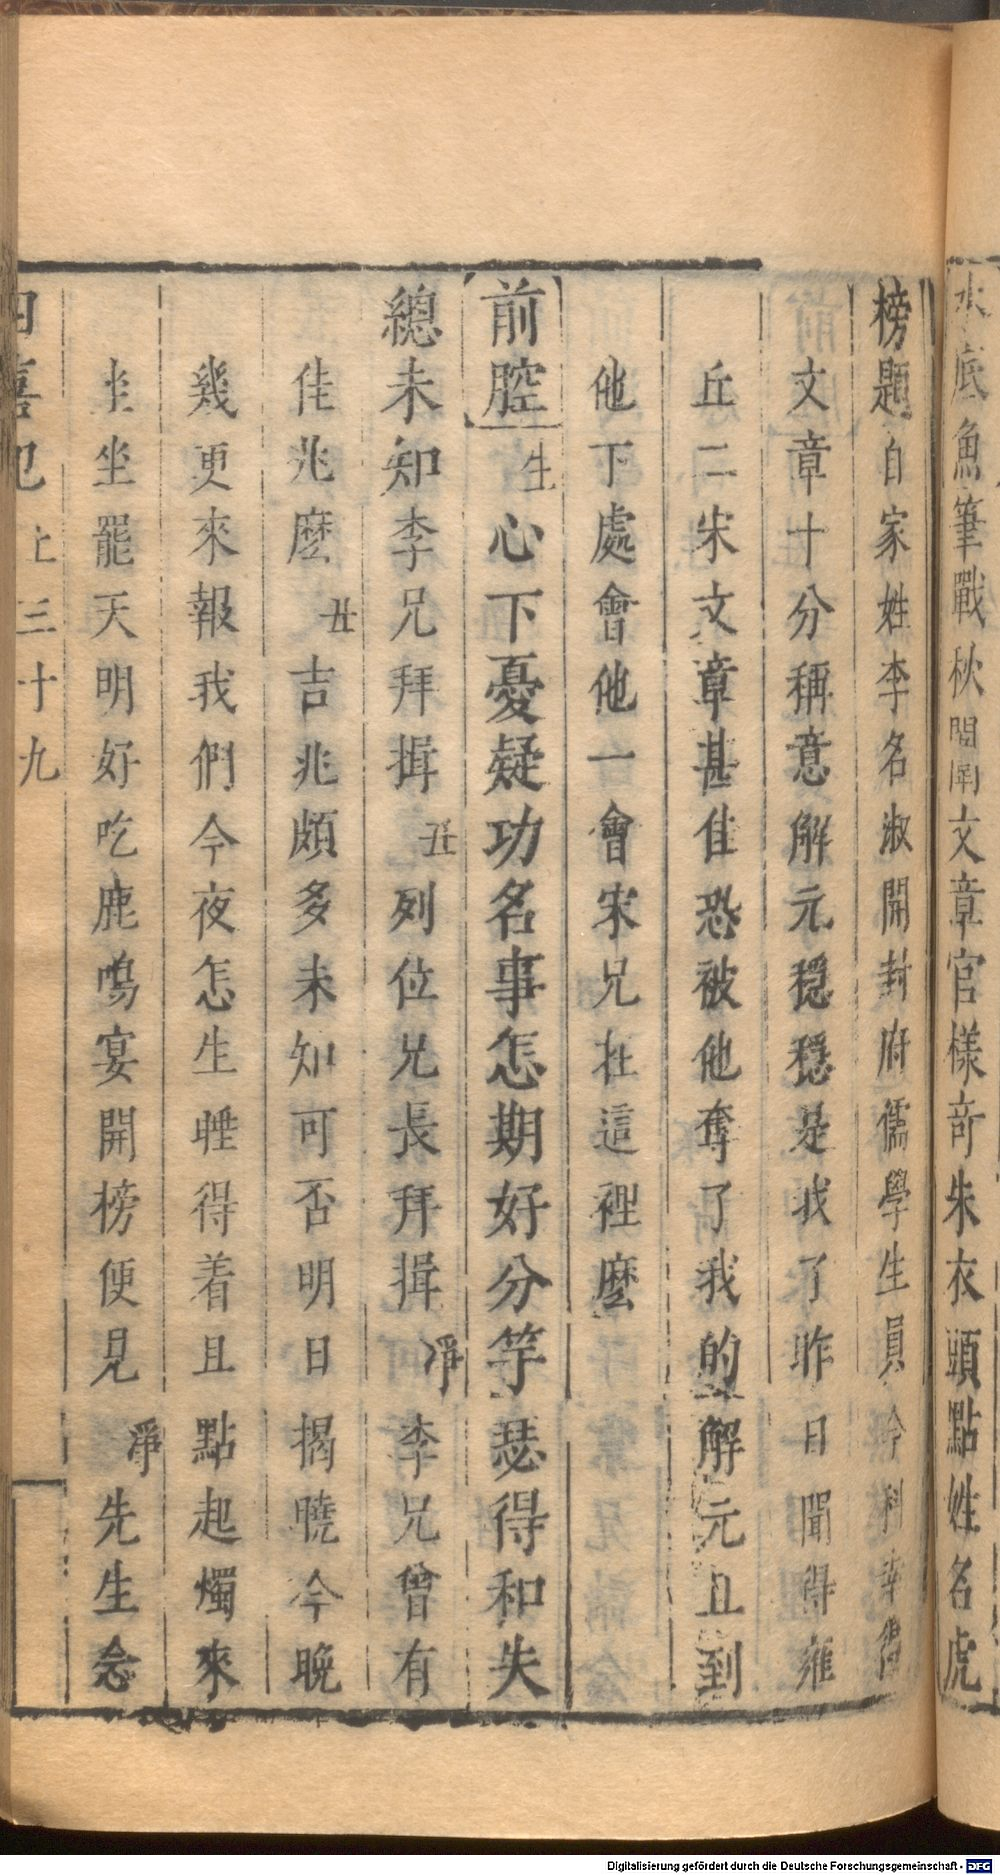 水底魚筆戰秋闈文章官樣竒朱衣頭點姓名虎
榜題自家姓李名淑開封府儒學生員今科幸得
文章十分稱意解元穩穩是我了昨日聞得雍
丘二宋文章甚佳恐被他奪了我的解元且到
他下處會他一會宋兄在這裡麽
前腔生心下憂疑功名事怎期好分竽瑟得和失
總未知李兄拜揖丑列位兄長拜揖淨李兄曾有
佳兆麽丑吉兆頗多未知可否明日揭曉今晚
幾更來報我們今夜怎生睡得着且點起燭來
坐坐罷天明好吃鹿鳴宴開榜便見淨先生念
四喜記上三十九
Digitalisierung gefördert durch die Deutsche Forschungsgemeinschaft - DFG